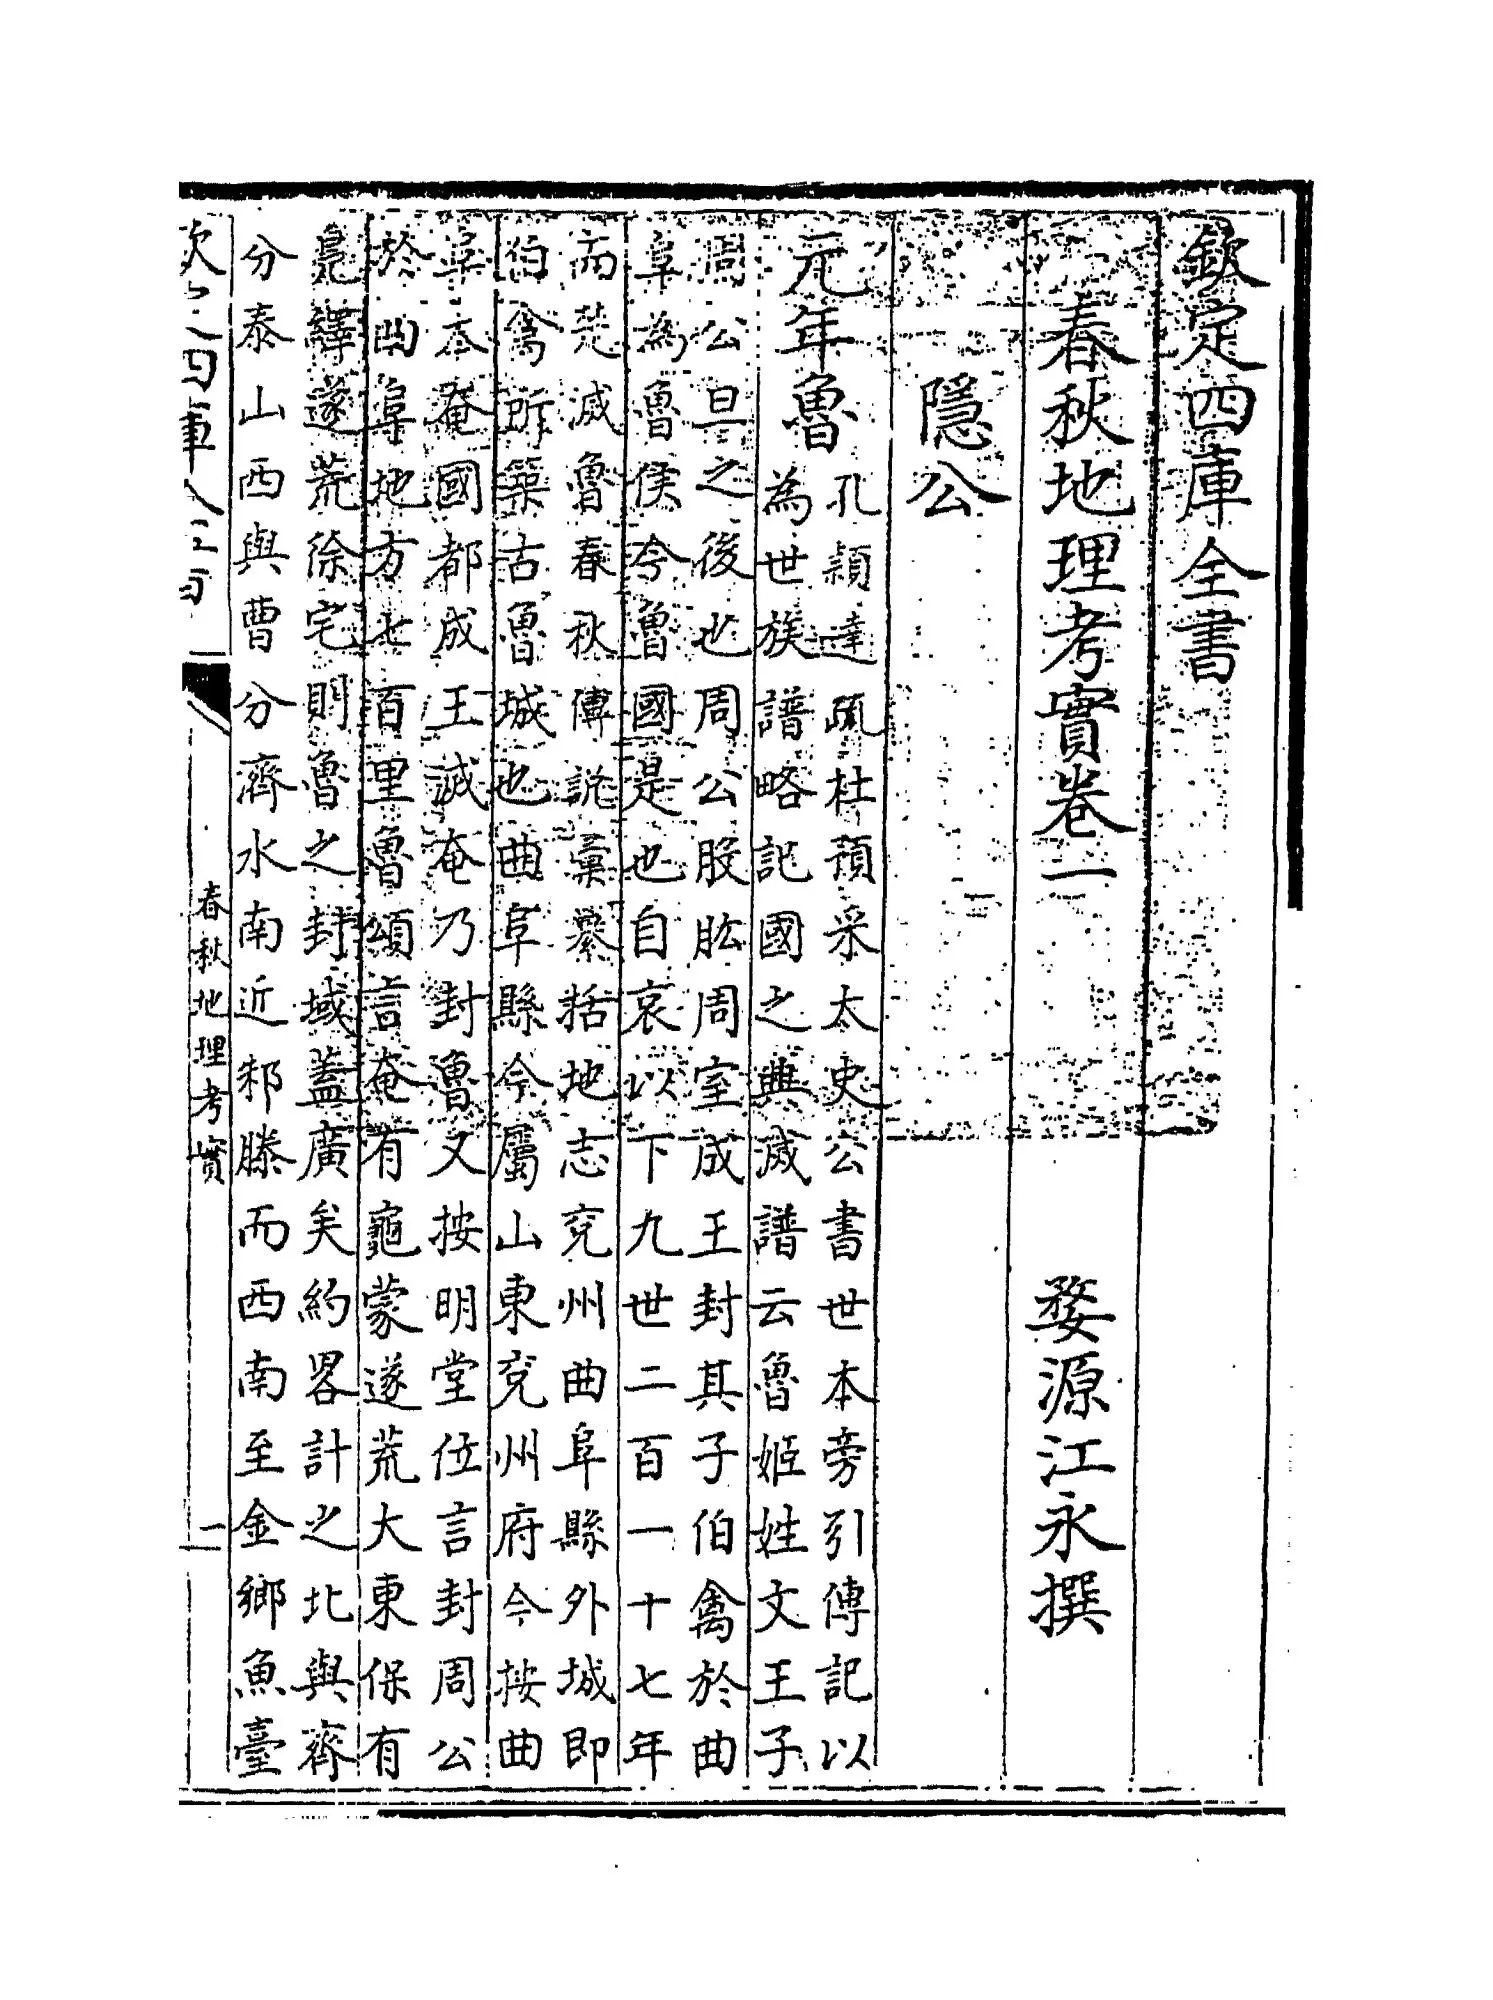 欽定四庫全書
春秋地理考實卷一
婺源江永撰
隱公
元年魯
孔穎達疏杜預采太史公書世本旁引傳記以
為世族譜略記國之興滅譜云魯姬姓文王子
周公旦之後也周公股肱周室成王封其子伯禽於曲
阜為魯侯今魯國是也自哀以下九世二百一十七年
而楚滅魯春秋傳說彙纂括地志兗州曲阜縣外城即
伯禽所築古魯城也曲阜縣今屬山東兗州府今按曲
阜本奄國都成王滅奄乃封魯又按明堂位言封周公
於曲阜地方七百里魯頌言奄有龜蒙遂荒大東保有
鳧繹遂荒徐宅則魯之封域蓋廣矣約畧計之北與齊
分泰山西與曹分濟水南近邾滕而西南至金鄉魚臺
春秋地理考實
一